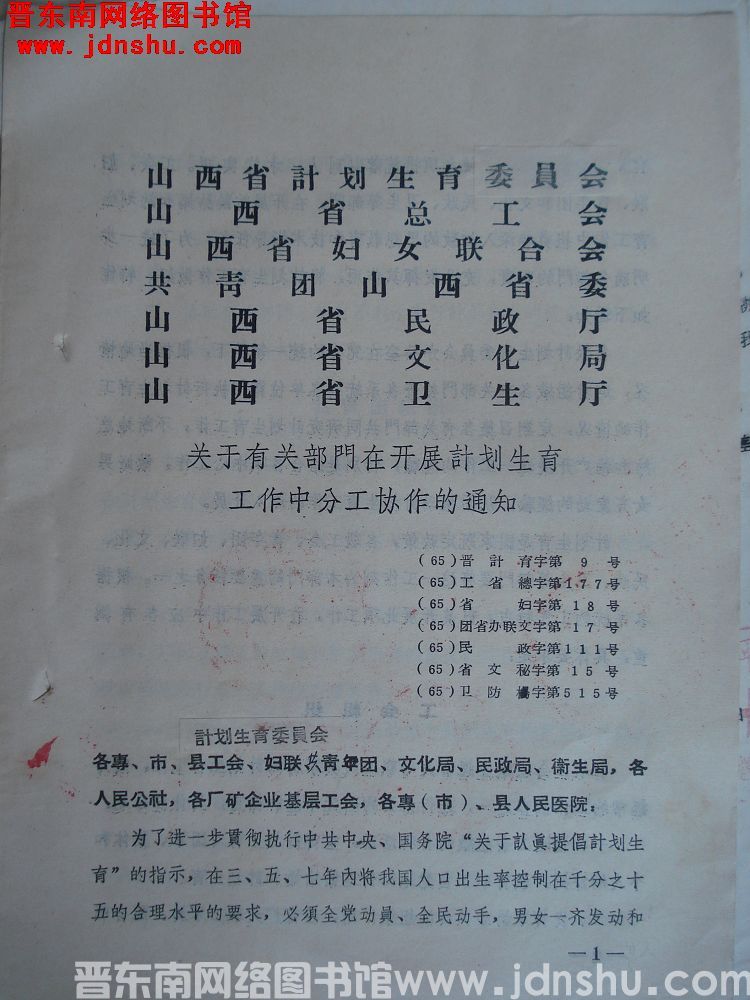 晋东南网络图书馆
www.jdnshu.com
山西省計划生育委員会
山西省总工会
山西省妇女联合会
共青团山西省委
山西省民政厅
山西省文化局
山西省卫生厅
关于有关部門在开展計划生育
工作中分工协作的通知
(65)晋計育字第9号
(65)工省總字第177号
(65)省妇字第18号
(65)团省办联文字第17号
(65)民政字第111号
(65)省文秘字第15号
(65)卫防楊字第515号
計划生育委員会
各專、市、县工会、妇联共青年团、文化局、民政局、衞生局，各
人民公社，各厂矿企业基层工会，各專（市）、县人民医院，
为了进一步貫彻执行中共中央、国务院“关于訊眞提倡計划生
育”的指示，在三、五、七年內将我国人口出生率控制在千分之十
五的合理水平的要求，必須全党动員、全民动手，男女一齐发动和
—1—
晋东南网络图书馆www.jdnshu.com